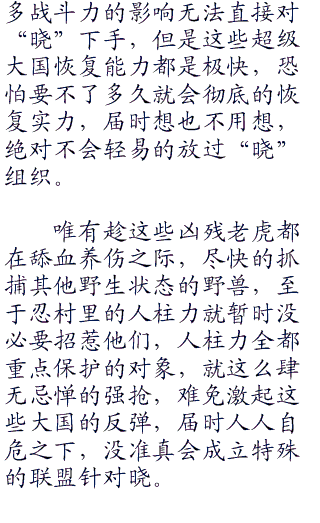 多战斗力的影响无法直接对
“晓”下手，但是这些超级
大国恢复能力都是极快，恐
怕要不了多久就会彻底的恢
复实力，届时想也不用想，
绝对不会轻易的放过“晓”
组织。
唯有趁这些凶残老虎都
在舔血养伤之际，尽快的抓
捕其他野生状态的野兽，至
于忍村里的人柱力就暂时没
必要招惹他们，人柱力全都
重点保护的对象，就这么肆
无忌惮的强抢，难免激起这
些大国的反弹，届时人人自
危之下，没准真会成立特殊
的联盟针对晓。